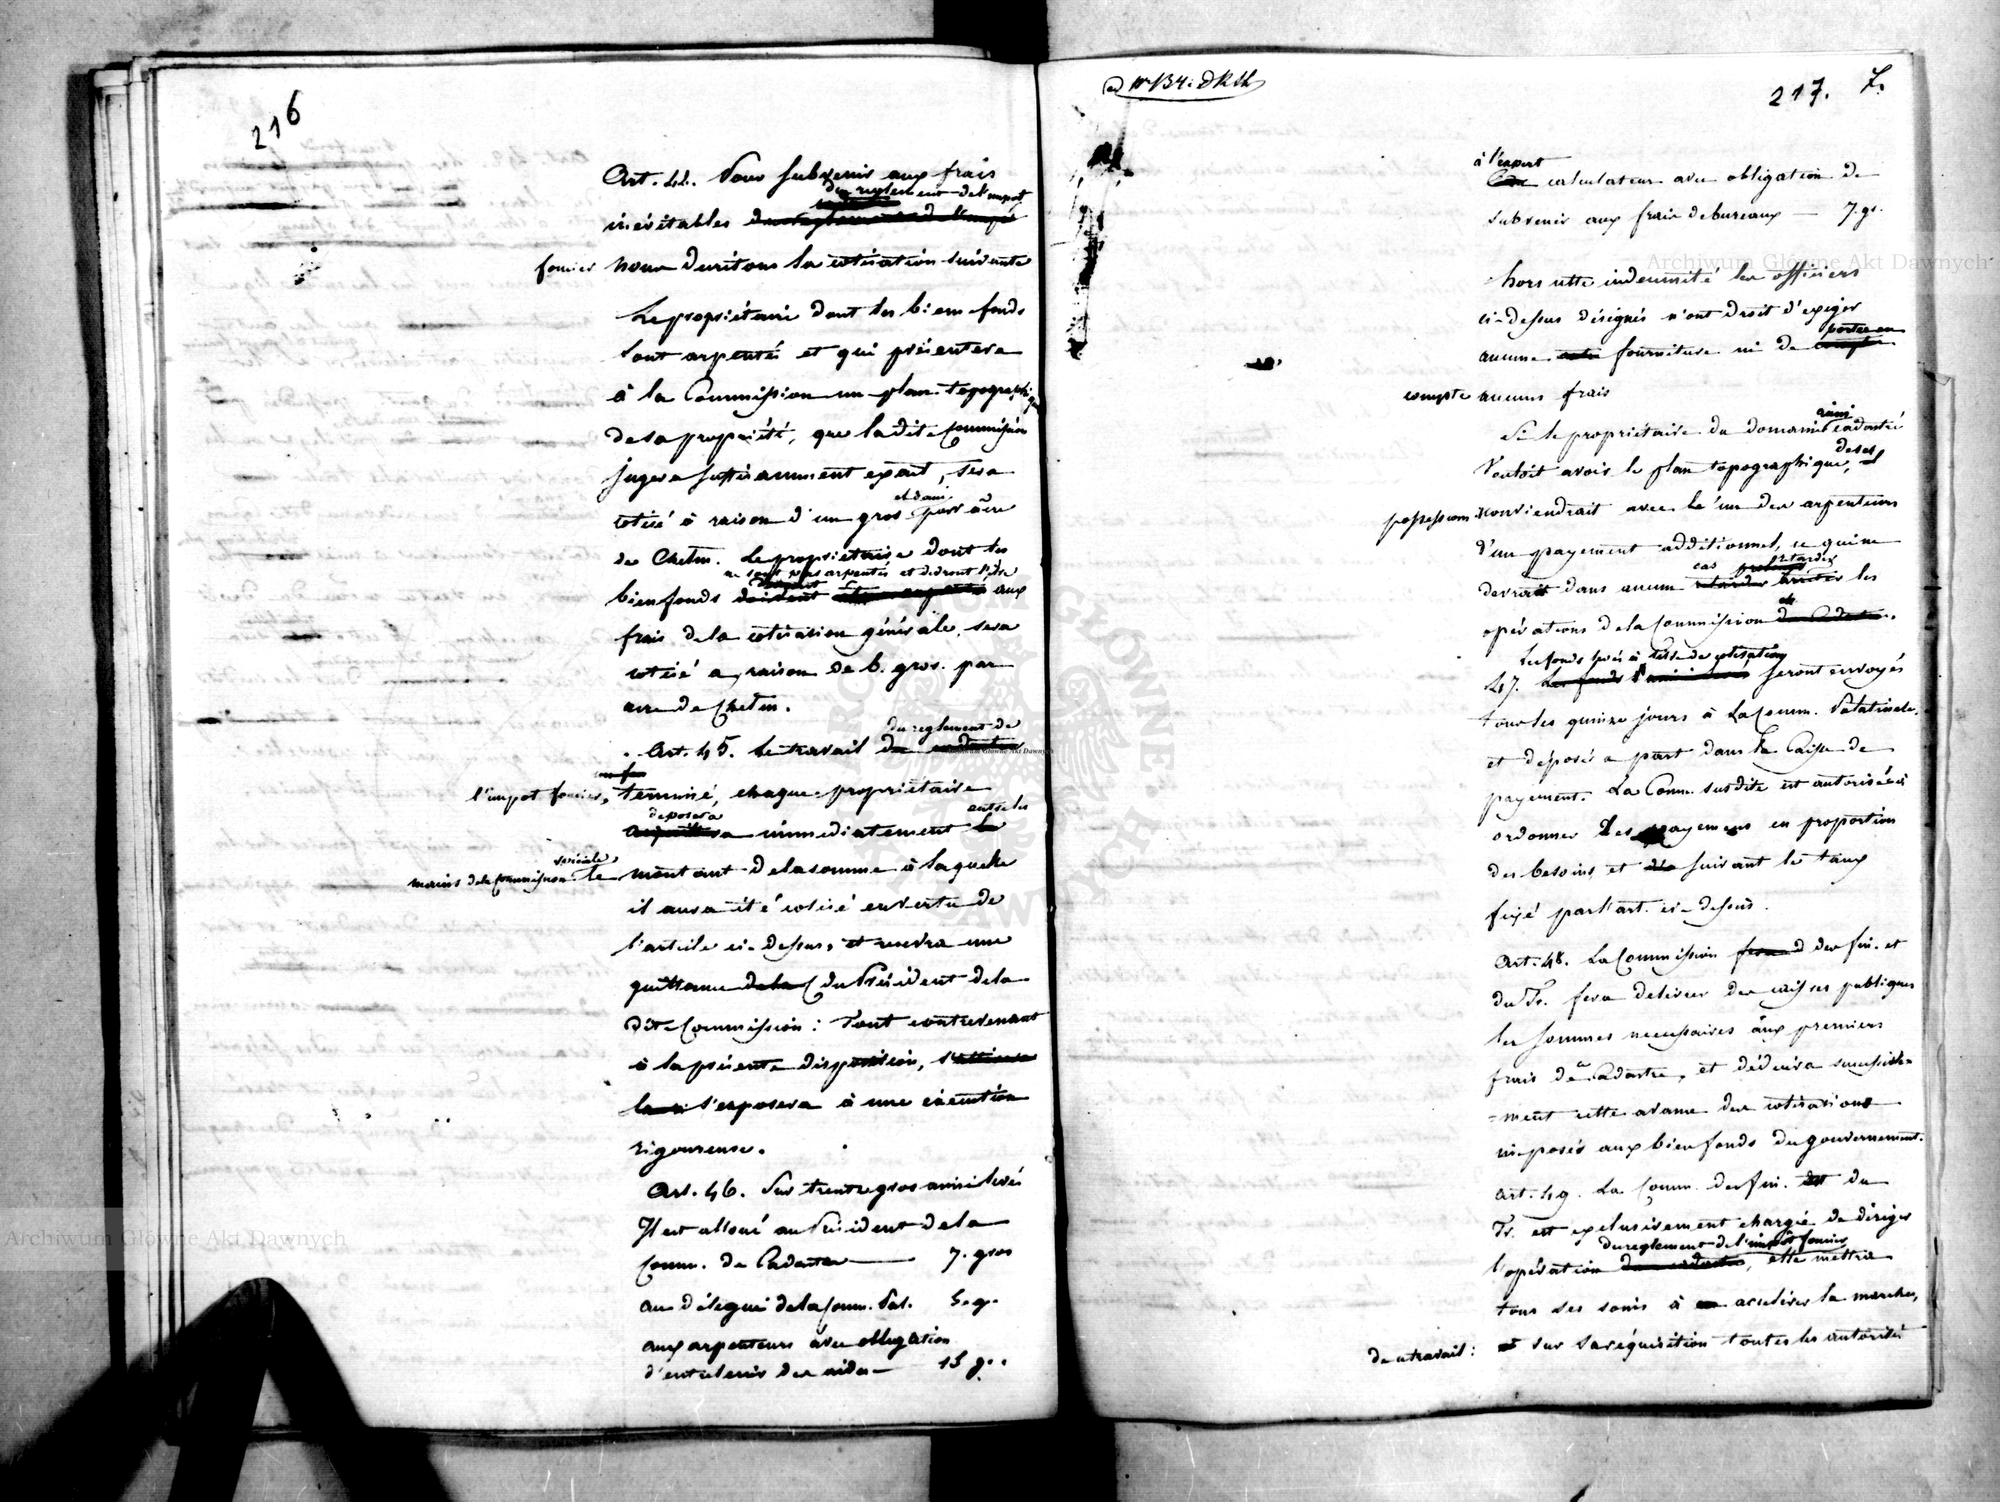 216
Art. 44. Pour subvenir aux frais
du reglement de l'impot
inévitables du reglement de l'impot
foncier nous decretons la cotisation suivante
Le propriétaire dont les bien fonds
sont arpentés et qui présentera
à la Commission un plan topographique
de sa propriété, que la dite Commission
jugera suffisamment exact, sera
et demi
cotisé à raison d'un gros par acre
de Chelm. Le propriétaire dont les
ne sont pas arpentés et devront l'être
bien fonds doivent aux
frais de la cotisation générale, sera
cotisé a raison de 6. gros. par
acre de Chelm.
du reglement de
Art. 45. Le travail du cadastre
l'impot foncier, terminé, chaque propriétaire
deposera entre les
acquittera immediatement le
speciale
mains de la Commission le montant de la somme à laquelle
il aura été cotisé en vertu de
l'article ci-dessus, et recevra une
quittance de la C du Président de la
dite Commission: Tout contrevenant
à la présente disposition, s'attirera
s'exposera à une exécution
rigoureuse.
Art. 46. Sur trente gros ainsi levés
Il est alloué au Président de la
Comm. de Cadastre — 7. gros
au délégué de la Comm. Pal. 5. g.
aux arpenteurs avec obligation
d'entretenir des aides — 15 g.
217. 7.
à l'expert
calculateur avec obligation de
subvenir aux frais de bureaux — 7. gr.
hors cette indemnité les officiers
ci-dessus désignés n'ont droit d'exiger
porter en
aucune autre fourniture ni de compter
compte aucuns frais
ainsi
Si le propriétaire du domaine cadastré
de ses
vouloit avoir le plan topographique,
possessions conviendrait avec l'un des arpenteurs
d'un payement additionnel, ce qui ne
cas retarder
devrait dans aucun retarder arrêter les
opérations de la Commission de Cadastre.
Les fonds levés à titre de cotisation
47. Les fonds seront envoyés
tous les quinze jours à la Comm. Palatinale,
et déposés a part dans la Caisse de
payement. La Comm. susdite est autorisée à
ordonner des payemens en proportion
des besoins, et suivant le taux
fixé par l'art. ci-dessus.
Art. 48. La Commission fera d des fin. et
du Tr. fera delivrer des caisses publiques
les sommes necessaires aux premiers
frais de Cadastre, et déduira successive-
-ment cette avance des cotisations
imposés aux bien fonds du gouvernement.
Art. 49. La Comm. des fin. et du
Tr. est exclusivement chargée de diriger
du reglement de l'impôt foncier
l'opération du cadastre, elle mettra
tous ses soins à accelerer la marche,
du travail: et sur sa réquisition toutes les autorités
Archiwum Główne Akt Dawnych
Archiwum Główne Akt Dawnych
Archiwum Główne Akt Dawnych